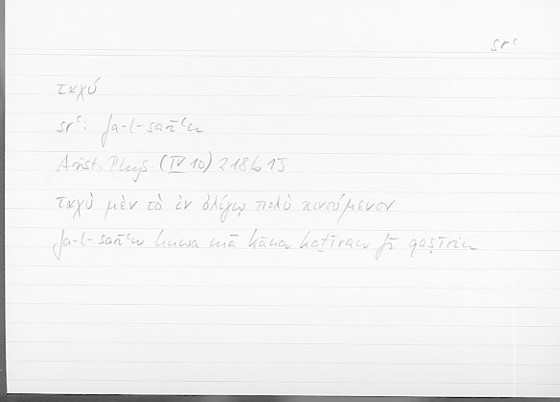 srᶜ
ταχύ
srᶜ: fa-l-sarīᶜu
Arist. Phys. (IV 10) 218b15
ταχὺ μὲν τὸ ἐν ὀλίγῳ πολὺ κινούμενον
fa-l-sarīᶜu huwa mā kāna kaṯīran fī qaṣīrin